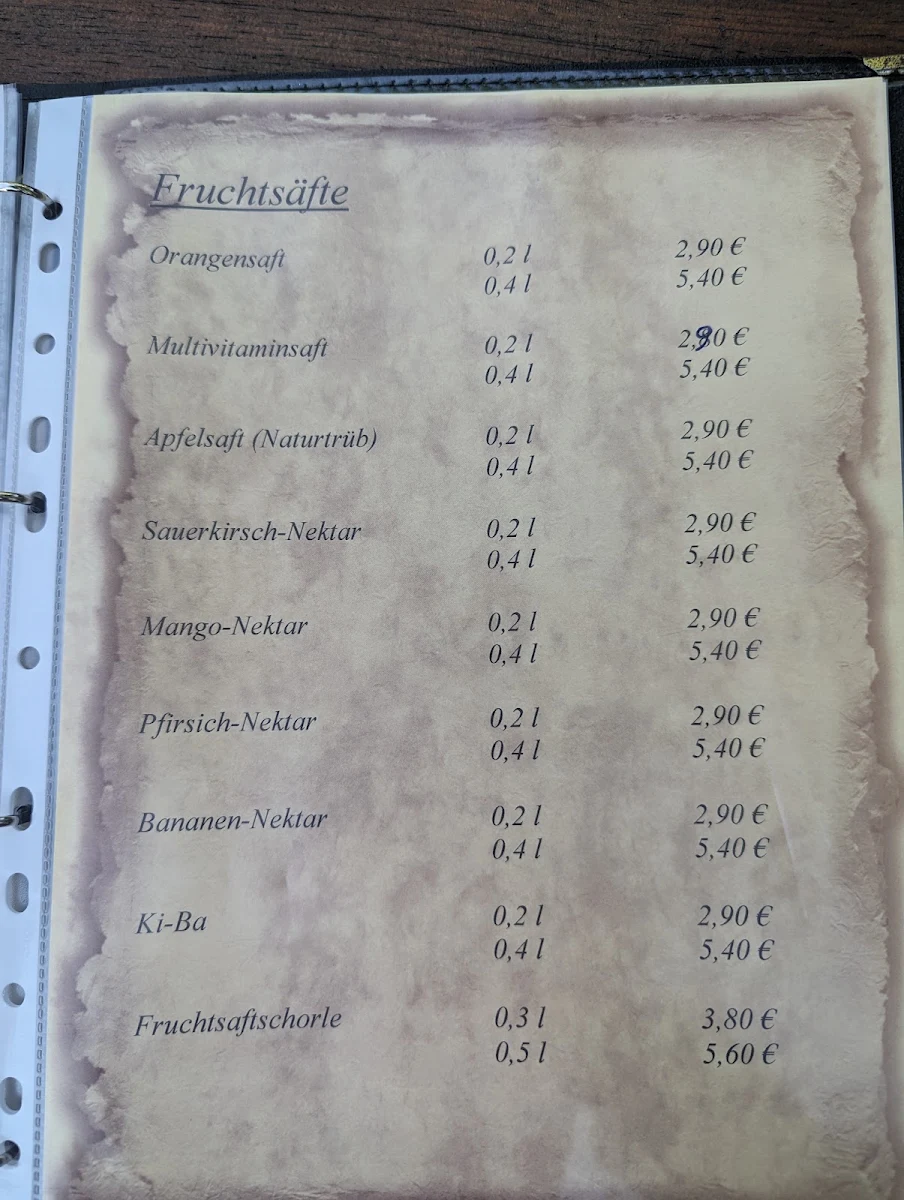 Fruchtsäfte
Orangensaft 0,2 l 2,90 €
0,4 l 5,40 €
Multivitaminsaft 0,2 l 2,90 €
0,4 l 5,40 €
Apfelsaft (Naturtrüb) 0,2 l 2,90 €
0,4 l 5,40 €
Sauerkirsch-Nektar 0,2 l 2,90 €
0,4 l 5,40 €
Mango-Nektar 0,2 l 2,90 €
0,4 l 5,40 €
Pfirsich-Nektar 0,2 l 2,90 €
0,4 l 5,40 €
Bananen-Nektar 0,2 l 2,90 €
0,4 l 5,40 €
Ki-Ba 0,2 l 2,90 €
0,4 l 5,40 €
Fruchtsaftschorle 0,3 l 3,80 €
0,5 l 5,60 €